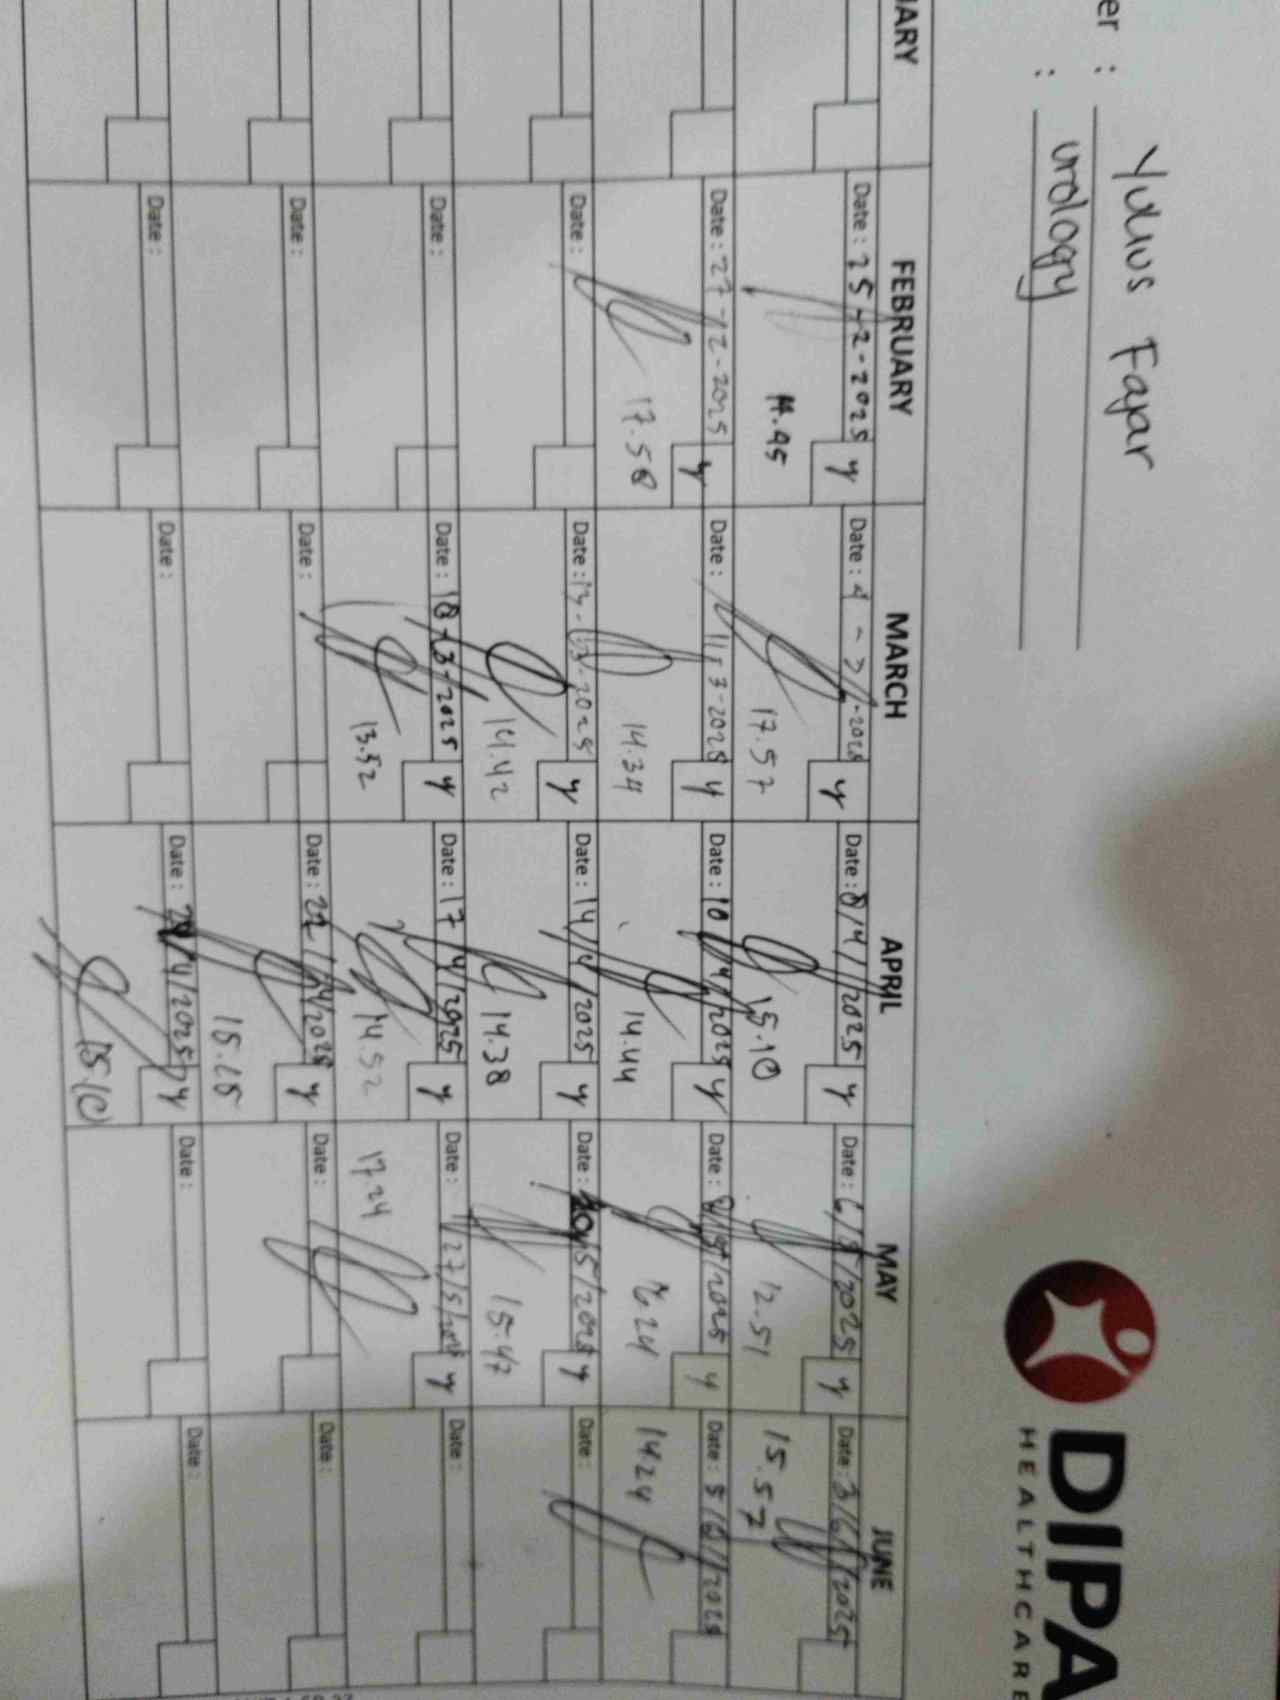 er : Yulius Fajar
: urology
DIPA
HEALTHCARE
ARY FEBRUARY MARCH APRIL MAY JUNE
Date : 25-2-2025 y Date : 4 - 3 -2025 y Date : 8/4/2025 y Date : 6/5/2025 y Date : 3/6/2025
17.57 15.10 12.51 15.57
Date : 27-2-2025 y Date : 11-3-2025 y Date : 10/4/2025 y Date : 8/5/2025 y Date : 5/6/2025
17.58 14.34 14.44 16.24 14.24
Date : Date : 13-3-2025 y Date : 14/4/2025 y Date : 20/5/2025 y Date :
14.42 14.38 15.47
Date : Date : 18-3-2025 y Date : 17/4/2025 y Date : 27/5/2025 y Date :
13.52 14.52 17.24
Date : Date : Date : 22/4/2025 y Date : Date :
15.28
Date : Date : Date : /4/2025 y Date : Date :
15.10